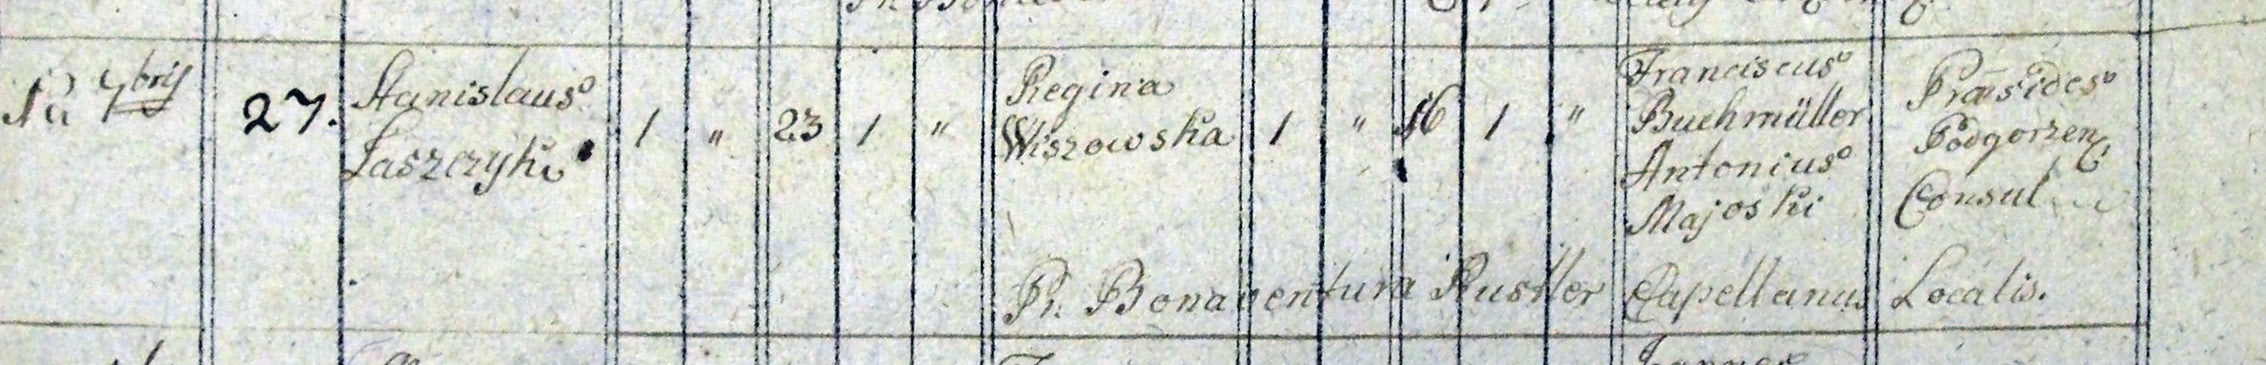 1ма 7bris 27. Stanislaus Łaszczyk 1 " 23 1 " Regina Wiszowska 1 " 16 1 " Franciscus Præsides
Buchmüller Podgorzen
Antonius Consul
Majoski
Pr. Bonaventura Rustler Capellanus Localis.